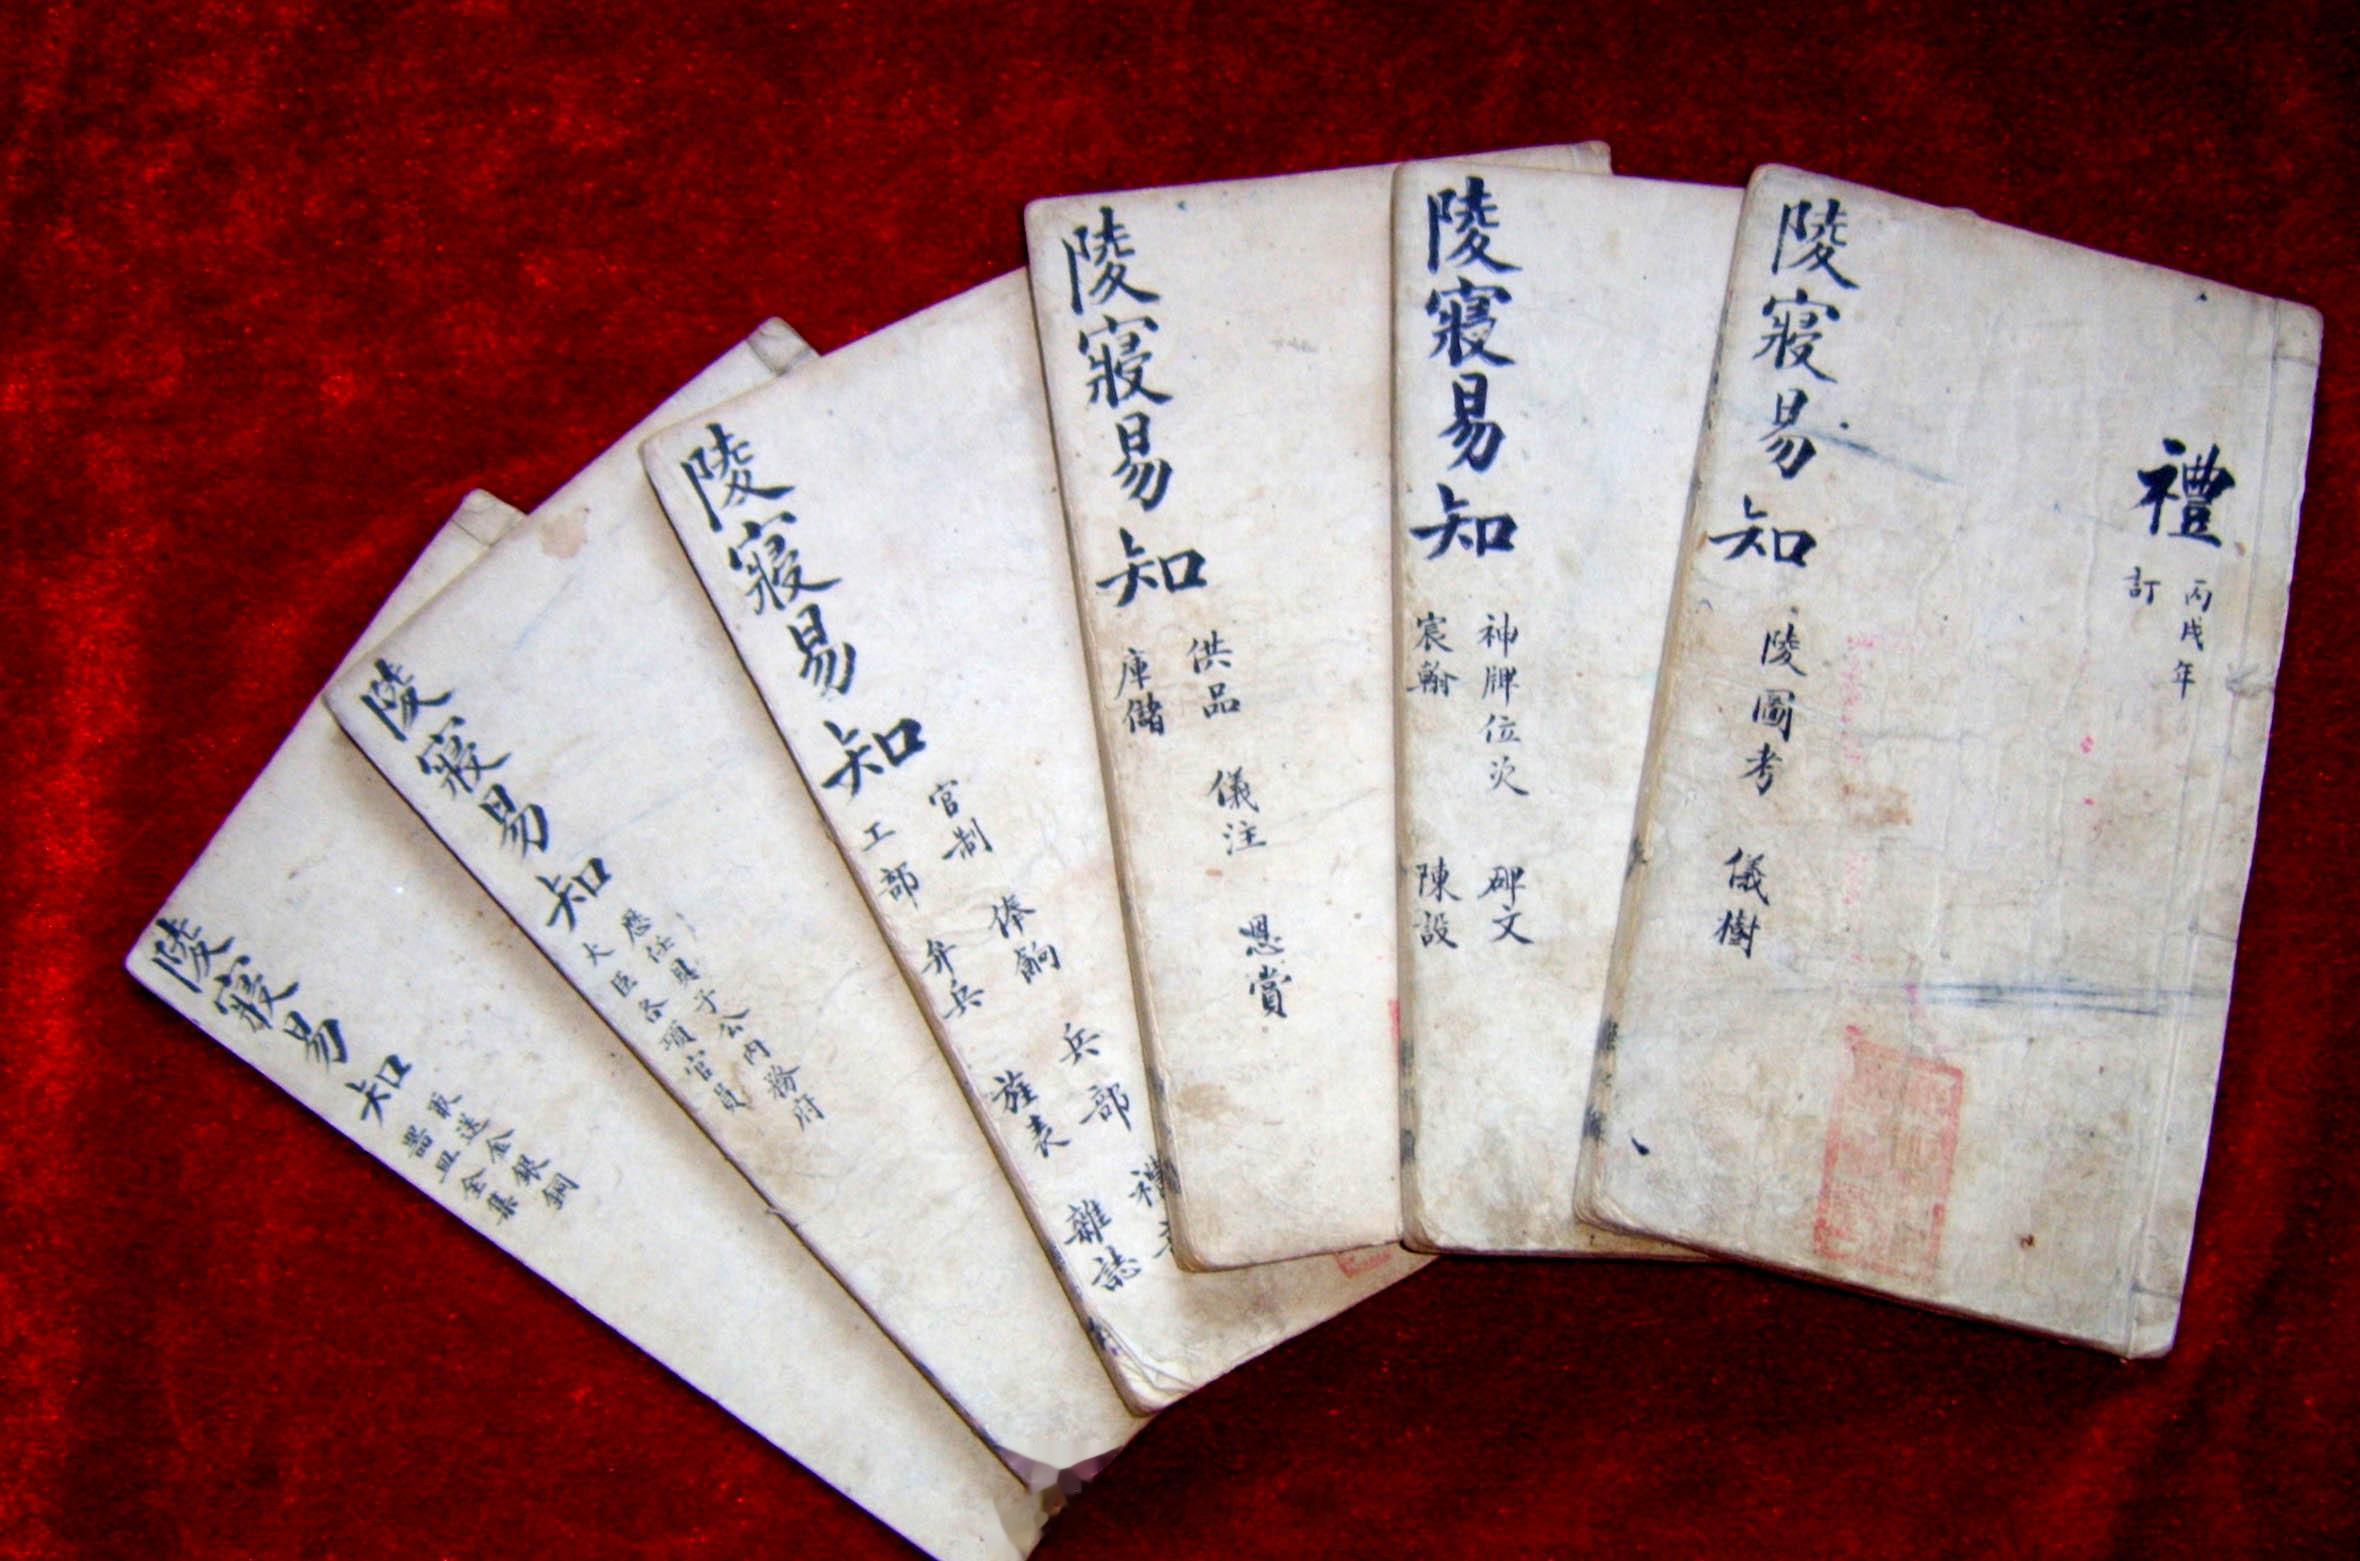 禮
丙戌年
訂
陵寢易知
陵圖考 儀樹
陵寢易知
神牌位次 碑文
宸翰 陳設
陵寢易知
供品 儀注 恩賞
庫儲
陵寢易知
官制 俸餉 兵部
工部 弁兵 旌表 雜誌
陵寢易知
歷任貝子公內務府
大臣各項官員
陵寢易知
送金銀銅
器皿全集